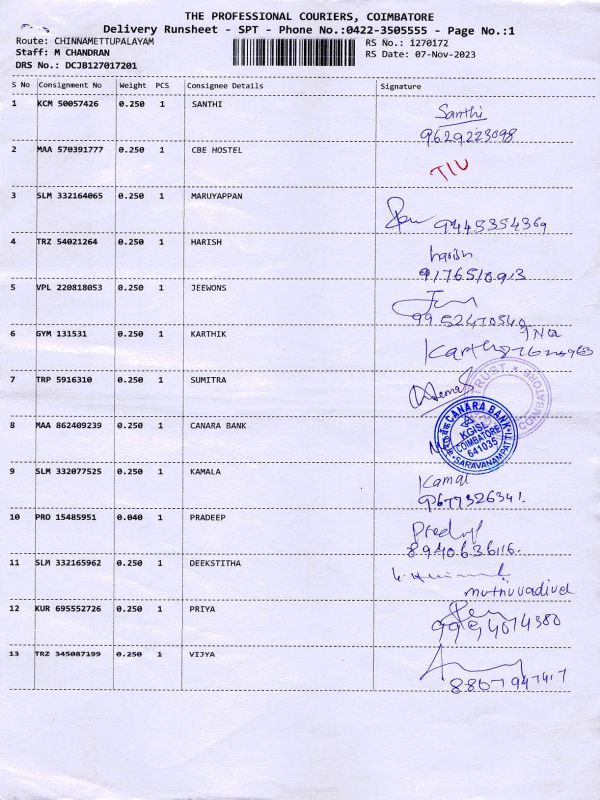 THE PROFESSIONAL COURIERS, COIMBATORE
Delivery Runsheet - SPT - Phone No.:0422-3505555 - Page No.:1
Route: CHINNAMETTUPALAYAM RS No.: 1270172
Staff: M CHANDRAN RS Date: 07-Nov-2023
DRS No.: DCJB127017201
S No Consignment No Weight PCS Consignee Details Signature
1 KCM 50057426 0.250 1 SANTHI Santhi
9629223098
2 MAA 570391777 0.250 1 CBE HOSTEL
3 SLM 332164065 0.250 1 MARUYAPPAN
9445354369
4 TRZ 54021264 0.250 1 HARISH harish
9176510913
5 VPL 220818053 0.250 1 JEEWONS
9952470540
6 GYM 131531 0.250 1 KARTHIK
7 TRP 5916310 0.250 1 SUMITRA
TRUST
COIMBATORE
8 MAA 862409239 0.250 1 CANARA BANK
CANARA BANK
KGISL
COIMBATORE
641035
SARAVANAMPATTI
9 SLM 332077525 0.250 1 KAMALA Kamal
9677326341
10 PRO 15485951 0.040 1 PRADEEP
8940636116.
11 SLM 332165962 0.250 1 DEEKSTITHA
muthuvadivel
12 KUR 695552726 0.250 1 PRIYA
9994014380
13 TRZ 345087199 0.250 1 VIJYA
8867947417